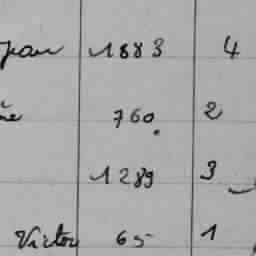 Jean 1883 4
760 2
1289 3
Victor 65 1